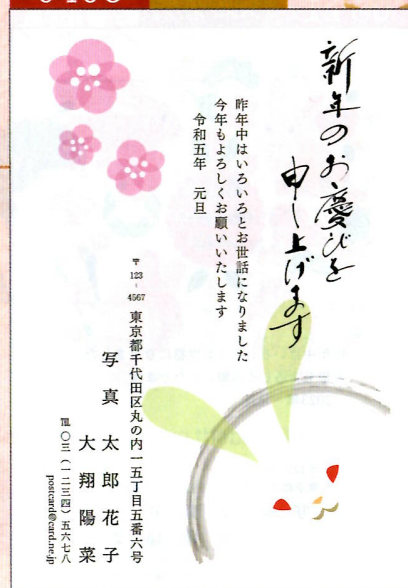 新年のお慶びを
申し上げます
昨年中はいろいろとお世話になりました
今年もよろしくお願いいたします
令和五年　元旦
〒123-4567 東京都千代田区丸の内一五丁目五番六号
写真　太郎花子
大翔陽菜
℡〇三（一二三四）五六七八
postcard@card.ne.jp